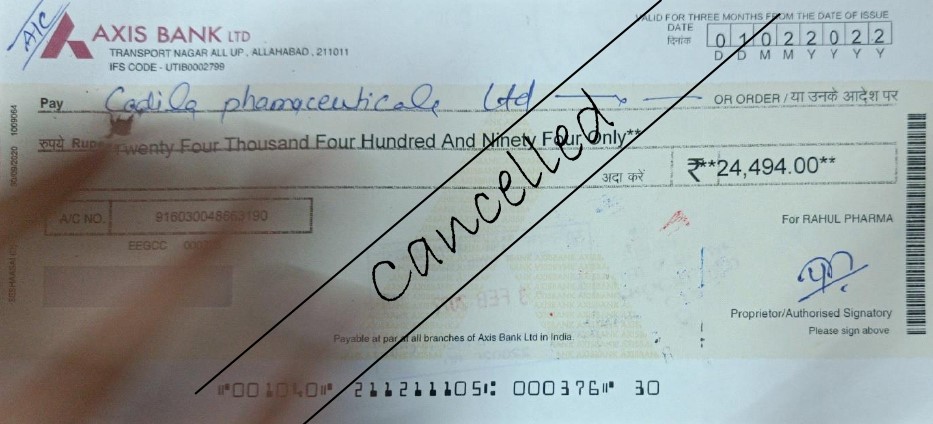 A/C
AXIS BANK LTD
TRANSPORT NAGAR ALL UP, ALLAHABAD, 211011
IFS CODE - UTIB0002799
VALID FOR THREE MONTHS FROM THE DATE OF ISSUE
DATE
दिनांक
0 1 0 2 2 0 2 2
D D M M Y Y Y Y
Pay Cadila phamaceuticals Ltd OR ORDER / या उनके आदेश पर
रुपये Twenty Four Thousand Four Hundred And Ninety Four Only**
अदा करें ₹**24,494.00**
cancelled
A/C NO. 916030048663190
EEGCC
For RAHUL PHARMA
Proprietor/Authorised Signatory
Please sign above
Payable at par at all branches of Axis Bank Ltd in India.
⑈001040⑈ 211211105⑆ 000376⑈ 30
10/09/2020 1009064